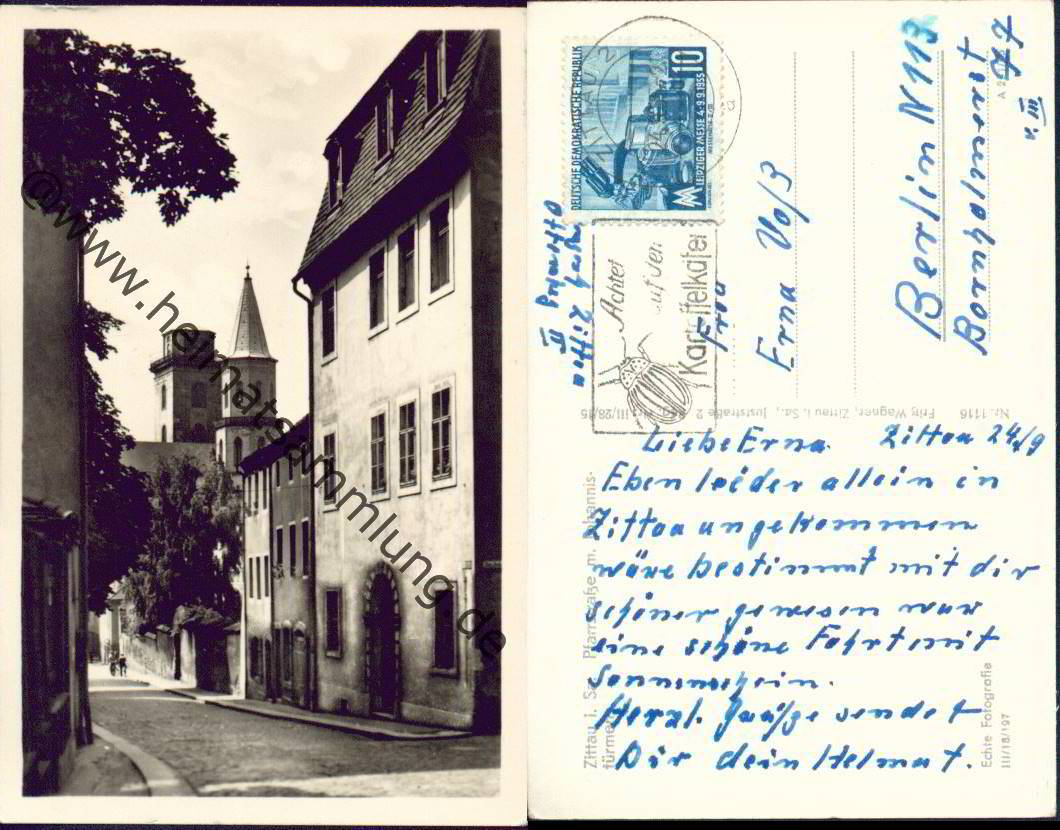 @www.heimatsammlung.de
Liebe Erna. Zittau 24./9
Eben leider allein in
Zittau angekommen
wäre bestimmt mit dir
schöner gewesen war
eine schöne Fahrt mit
Sonnenschein.
Herzl. Grüße sendet
Dir dein Helmut.
Frau
Erna Voß
Berlin N 113
Bornholmerst
77
v. III.
A 2
DEUTSCHE DEMOKRATISCHE REPUBLIK
10
LEIPZIGER MESSE 4.-9.9.1955
MM
ZITTAU 2
a
Achtet
auf den
Kartoffelkäfer
Zittau i. Sa. Pfarrstraße m. Johannis-
türme
Fritz Wagner, Zittau i. Sa., Juststraße 2 III/28/15
Nr. 1116
Echte Fotografie
III/18/197